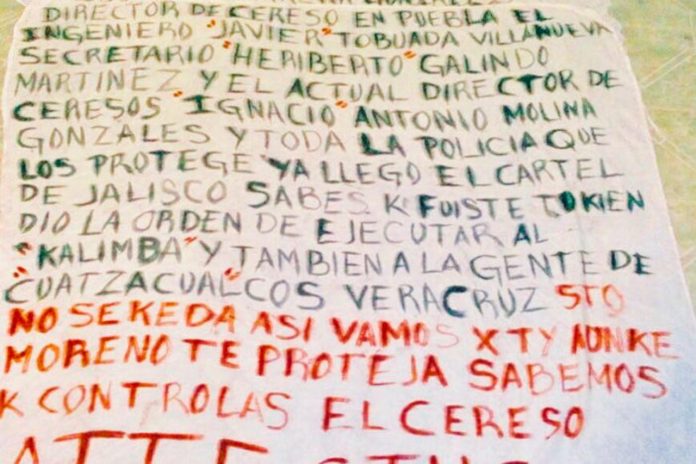 DIRECTOR DE CERESO EN PUEBLA EL
INGENIERO "JAVIER" TOBUADA VILLANUEVA
SECRETARIO "HERIBERTO" GALINDO
MARTINEZ Y EL ACTUAL DIRECTOR DE
CERESOS "IGNACIO" ANTONIO MOLINA
GONZALES Y TODA LA POLICIA QUE
LOS PROTEGE YA LLEGO EL CARTEL
DE JALISCO SABES K FUISTE TOKIEN
DIO LA ORDEN DE EJECUTAR AL
"KALIMBA" Y TAMBIEN A LA GENTE DE
CUATZACUALCOS VERACRUZ STO
NO SE KEDA ASI VAMOS X TY AUNKE
MORENO TE PROTEJA SABEMOS
K CONTROLAS EL CERESO